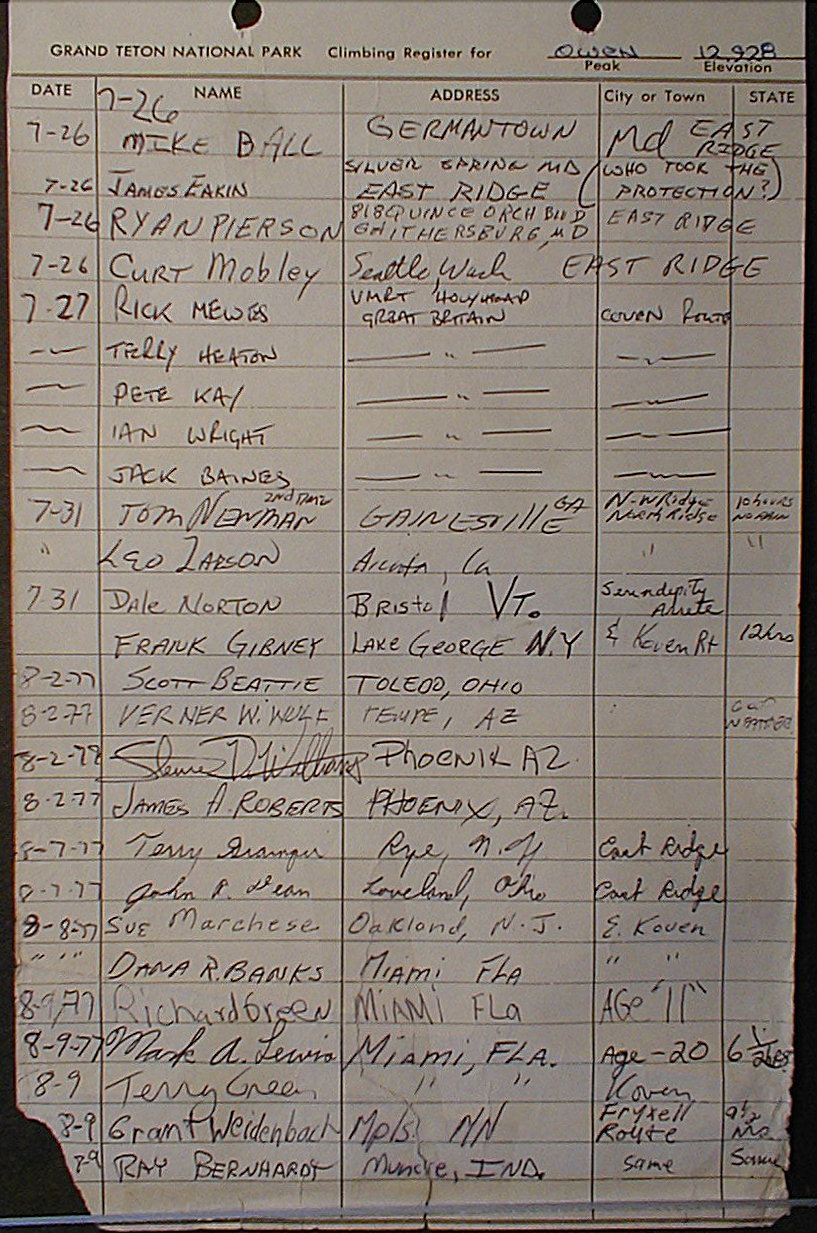 GRAND TETON NATIONAL PARK Climbing Register for OWEN 12,928
Peak Elevation
DATE NAME ADDRESS City or Town STATE
7-26
7-26 MIKE BALL GERMANTOWN Md EAST RIDGE
7-26 JAMES EAKIN SILVER SPRING MD EAST RIDGE (WHO TOOK THE PROTECTION?)
7-26 RYAN PIERSON 818 QUINCE ORCH BLVD GAITHERSBURG, MD EAST RIDGE
7-26 CURT Mobley Seattle, Wash EAST RIDGE
7-27 RICK MEWES HOLYHEAD GREAT BRITAIN COVEN Route
— TERRY HEATON — " — — " —
— PETE KAY — " — — " —
— IAN WRIGHT — " — — " —
— JACK BAINES — " — — " —
7-31 TOM NEWMAN 2nd TIME GAINESVIllE GA N-W Ridge North Ridge 10 hours NO RAIN
" LEO LARSON Arcata, Ca " "
7-31 Dale NORTON BRIStol VT. Serendipity Arrete
FRANK GIBNEY LAKE GEORGE N.Y & Koven Rt 12 hrs
8-2-77 SCOTT BEATTIE TOLEDO, OHIO
8-2-77 VERNER W. WULF TEMPE, AZ
8-2-77 D. Williams PHOENIX AZ.
8-2-77 JAMES A. ROBERTS PHOENIX, AZ.
8-7-77 Terry Grainger Rye, N.Y East Ridge
8-7-77 John P. Dean Loveland, Ohio East Ridge
8-8-77 SUE Marchese Oakland, N.J. E. Koven
" " " DANA R. BANKS MIAMI FLA " "
8-9,77 Richard Green MIAMI FLa AGe "11"
8-9-77 Mark A. Lewis MIAMI, FLA. Age-20 6 1/2 HRS
8-9 Terry Green " " Koven
8-9 Grant Weidenbach Mpls. MN Fryxell Route 9 1/2
8-9 RAY BERNHARDT Muncie, IND. same Same